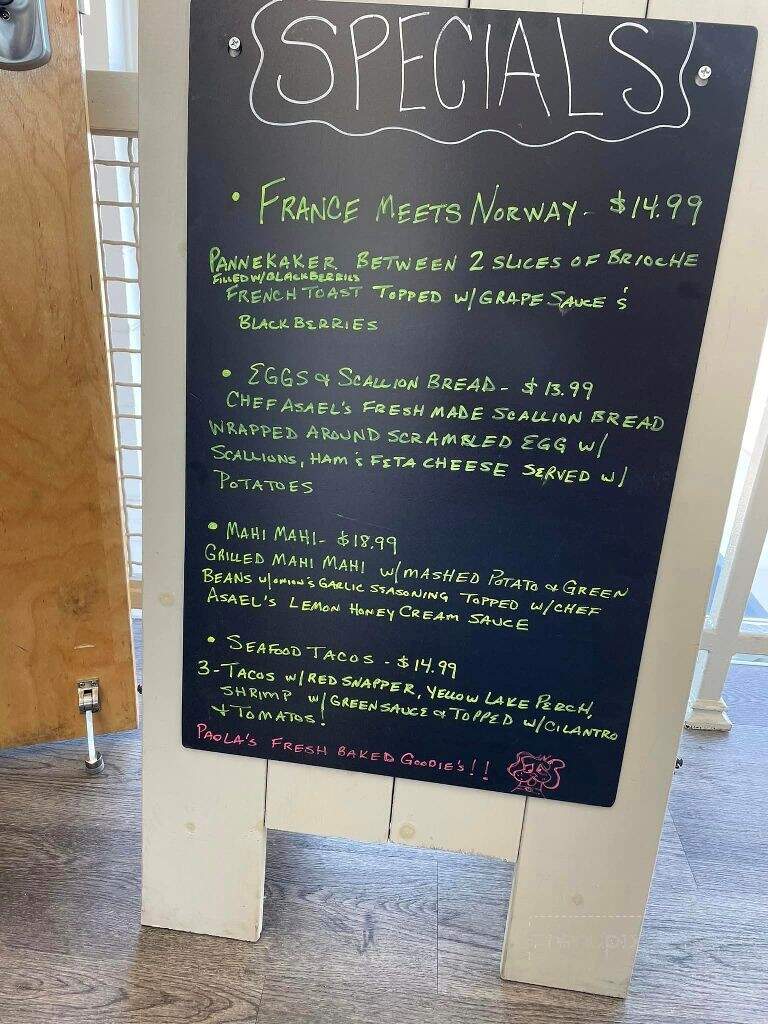 SPECIALS
• FRANCE MEETS NORWAY - $14.99
PANNEKAKER BETWEEN 2 SLICES OF BRIOCHE
FILLED W/BLACKBERRIES
FRENCH TOAST TOPPED W/ GRAPE SAUCE &
BLACKBERRIES
• EGGS & SCALLION BREAD - $13.99
CHEF ASAEL'S FRESH MADE SCALLION BREAD
WRAPPED AROUND SCRAMBLED EGG W/
SCALLIONS, HAM & FETA CHEESE SERVED W/
POTATOES
• MAHI MAHI - $18.99
GRILLED MAHI MAHI W/ MASHED POTATO & GREEN
BEANS W/ONION & GARLIC SEASONING TOPPED W/CHEF
ASAEL'S LEMON HONEY CREAM SAUCE
• SEAFOOD TACOS - $14.99
3-TACOS W/ RED SNAPPER, YELLOW LAKE PERCH,
SHRIMP W/ GREEN SAUCE & TOPPED W/CILANTRO
& TOMATOS!
PAOLA'S FRESH BAKED GOODIE'S!!
menupix